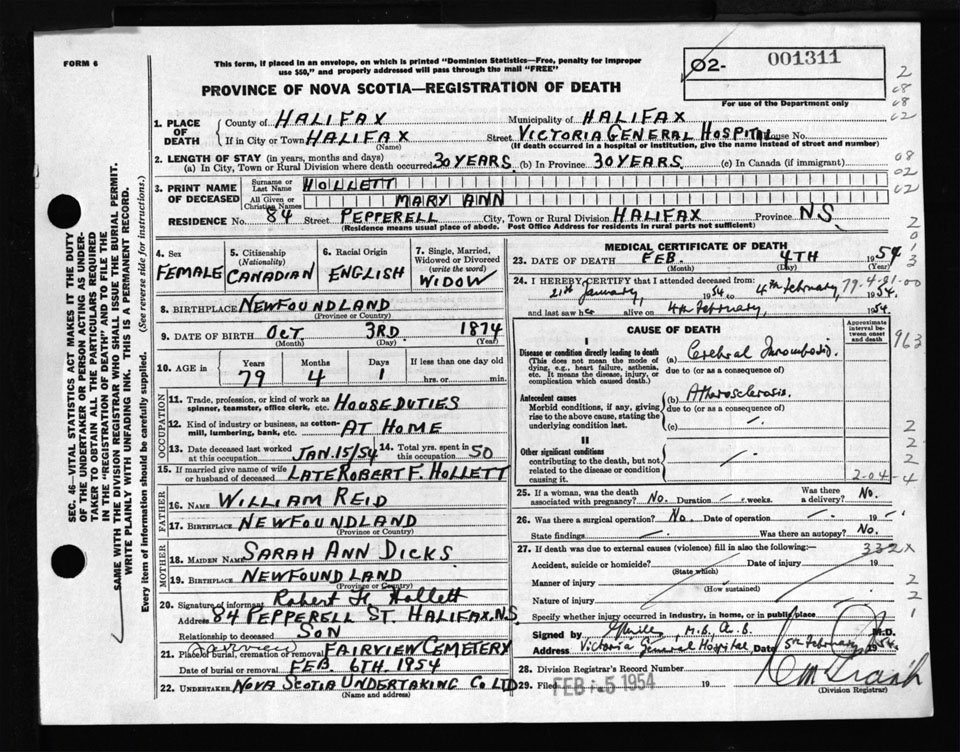 FORM 6
This form, if placed in an envelope, on which is printed "Dominion Statistics—Free, penalty for improper
use $50," and properly addressed will pass through the mail "FREE"
PROVINCE OF NOVA SCOTIA—REGISTRATION OF DEATH
02- 001311
For use of the Department only
SEC. 46—VITAL STATISTICS ACT MAKES IT THE DUTY
OF THE UNDERTAKER OR PERSON ACTING AS UNDER-
TAKER TO OBTAIN ALL THE PARTICULARS REQUIRED
IN THE "REGISTRATION OF DEATH" AND TO FILE THE
SAME WITH THE DIVISION REGISTRAR WHO SHALL ISSUE THE BURIAL PERMIT.
WRITE PLAINLY WITH UNFADING INK. THIS IS A PERMANENT RECORD.
Every item of information should be carefully supplied. (See reverse side for instructions.)
1. PLACE OF DEATH County of HALIFAX Municipality of HALIFAX
If in City or Town HALIFAX Street VICTORIA GENERAL HOSPITAL House No.
(Name) (If death occurred in a hospital or institution, give the name instead of street and number)
2. LENGTH OF STAY (in years, months and days)
(a) In City, Town or Rural Division where death occurred 30 YEARS (b) In Province 30 YEARS. (c) In Canada (if immigrant)
3. PRINT NAME OF DECEASED Surname or Last Name HOLLETT
All Given or Christian Names MARY ANN
RESIDENCE No. 84 Street PEPPERELL City, Town or Rural Division HALIFAX Province N.S
(Residence means usual place of abode. Post Office Address for residents in rural parts not sufficient)
4. Sex FEMALE
5. Citizenship (Nationality) CANADIAN
6. Racial Origin ENGLISH
7. Single, Married, Widowed or Divorced (write the word) WIDOW
8. BIRTHPLACE NEWFOUNDLAND
(Province or Country)
9. DATE OF BIRTH OCT 3RD 1874
(Month) (Day) (Year)
10. AGE IN Years 79 Months 4 Days 1 If less than one day old
hrs. or min.
OCCUPATION
11. Trade, profession, or kind of work as
spinner, teamster, office clerk, etc. HOUSE DUTIES
12. Kind of industry or business, as cotton-
mill, lumbering, bank, etc. AT HOME
13. Date deceased last worked at this occupation JAN. 15/54 14. Total yrs. spent in this occupation 50
15. If married give name of wife
or husband of deceased LATE ROBERT F. HOLLETT
FATHER
16. NAME WILLIAM REID
17. BIRTHPLACE NEWFOUNDLAND
(Province or Country)
MOTHER
18. MAIDEN NAME SARAH ANN DICKS
19. BIRTHPLACE NEWFOUNDLAND
(Province or Country)
20. Signature of informant Robert H Hollett
Address 84 PEPPERELL ST. HALIFAX. N.S.
Relationship to deceased SON
21. Place of burial, cremation or removal FAIRVIEW CEMETERY
Date of burial or removal FEB. 6TH 1954
22. UNDERTAKER NOVA SCOTIA UNDERTAKING CO LTD
(Name and address)
MEDICAL CERTIFICATE OF DEATH
23. DATE OF DEATH FEB. 4TH 1954
(Month) (Day) (Year)
24. I HEREBY CERTIFY that I attended deceased from:
21st January, 1954 to 4th February, 1954.
and last saw her alive on 4th February, 1954.
79-4-01-00
CAUSE OF DEATH
Approximate interval between onset and death
I
Disease or condition directly leading to death
(This does not mean the mode of
dying, e.g., heart failure, asthenia,
etc. It means the disease, injury, or
complication which caused death.)
(a) Cerebral Thrombosis.
due to (or as a consequence of)
963
Antecedent causes
Morbid conditions, if any, giving
rise to the above cause, stating the
underlying condition last.
(b) Atherosclerosis.
due to (or as a consequence of)
(c)
II
Other significant conditions
contributing to the death, but not
related to the disease or condition
causing it.
2-04-4
25. If a woman, was the death
associated with pregnancy? No. Duration weeks. Was there a delivery? No.
26. Was there a surgical operation? No. Date of operation 19
State findings Was there an autopsy? No.
27. If death was due to external causes (violence) fill in also the following:—
332X
Accident, suicide or homicide? Date of injury 19
(State which)
Manner of injury
(How sustained)
Nature of injury
Specify whether injury occurred in industry, in home, or in public place
Signed by M.B., M.D.
Address Victoria General Hospital Date 5th February 1954.
28. Division Registrar's Record Number
29. Filed FEB 5 1954 19
(Division Registrar)